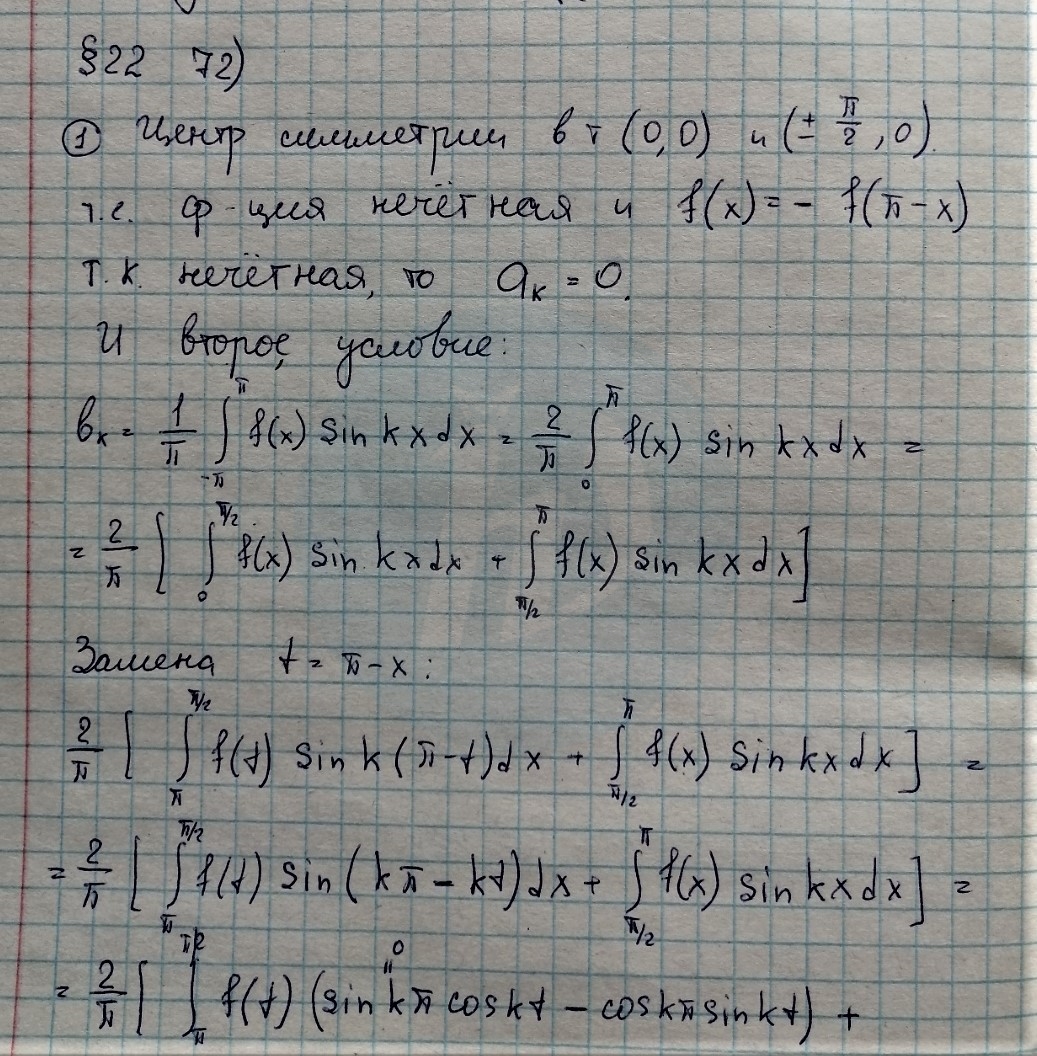 §22 72)
① Центр симметрии в т (0,0) и (± π/2, 0).
т.е. ф-ция нечётная и f(x) = - f(π-x)
т.к. нечётная, то a_k = 0.
И второе условие:
b_k = 1/π ∫_{-π}^{π} f(x) sin kx dx = 2/π ∫_0^π f(x) sin kx dx =
= 2/π [ ∫_0^{π/2} f(x) sin kx dx + ∫_{π/2}^π f(x) sin kx dx ]
Замена t = π - x :
2/π [ ∫_π^{π/2} f(t) sin k(π-t) dx + ∫_{π/2}^π f(x) sin kx dx ] =
= 2/π [ ∫_π^{π/2} f(t) sin (kπ - kt) dx + ∫_{π/2}^π f(x) sin kx dx ] =
0
= 2/π [ ∫_π^{π/2} f(t) (sin kπ cos kt - cos kπ sin kt) +